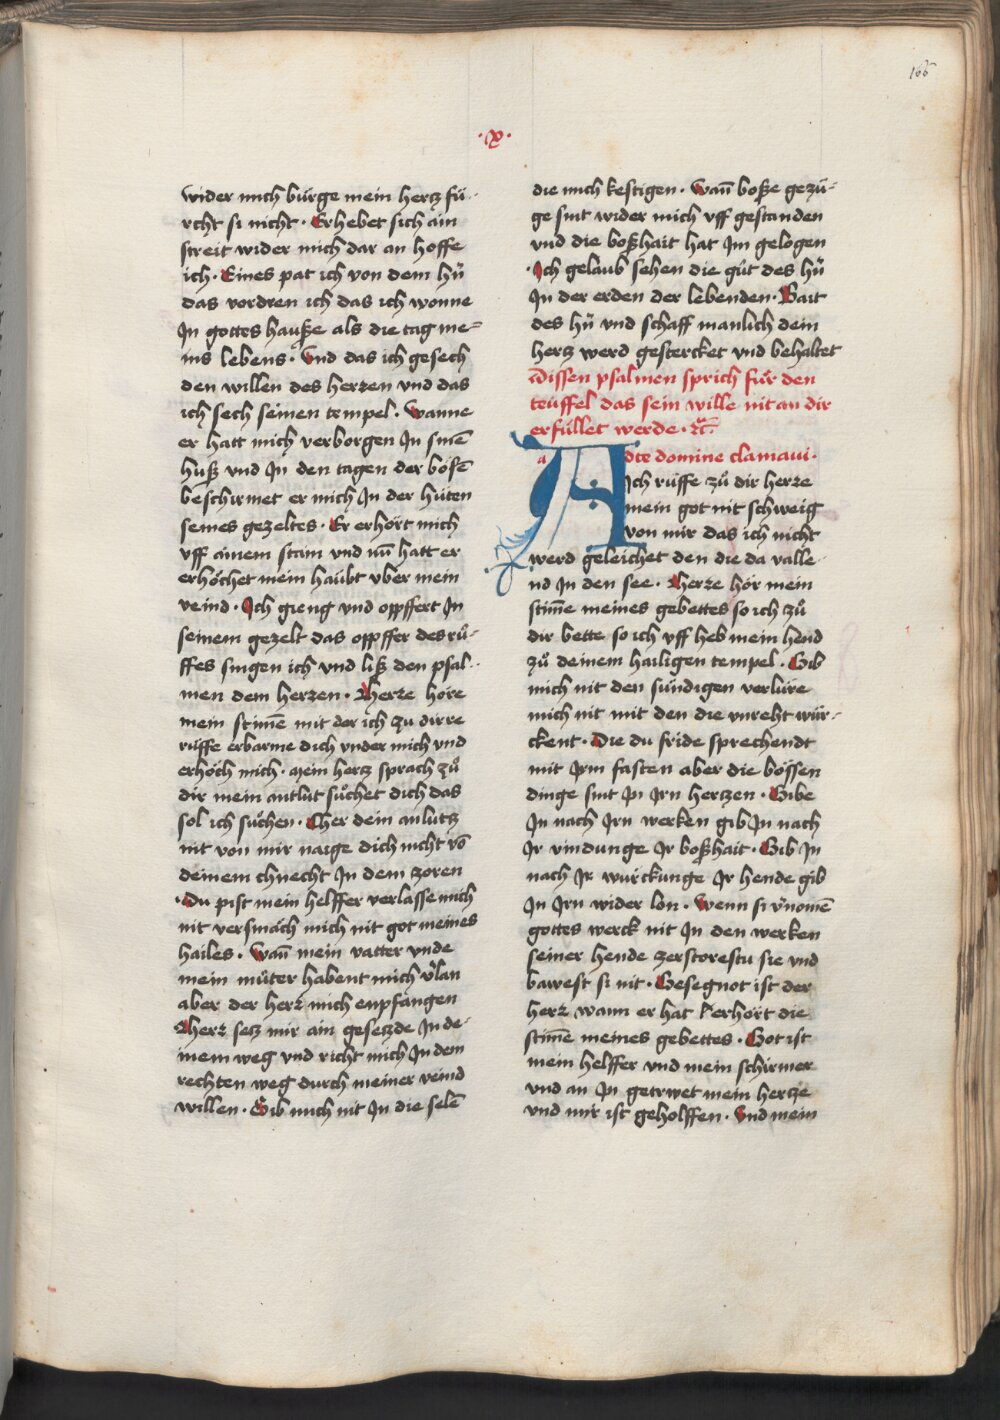 166
·x·
wider mich bürge mein hertz fü-
rcht si nicht · Erhebet sich ain
streit wider mich dar an hoffe
ich · Eines pat ich von dem hr̄
das vordren ich das ich wonne
Jn gottes hauße als die tag me-
ins lebens · Vnd das ich gesech
den willen des herzen vnd das
ich sech seinen tempel · Wanne
er hatt mich verborgen Jn sinē
huß vnd Jn den tagen der bösē
beschirmet er mich Jn der hüten
seines gezeltes · Er erhört mich
vff ainem stam vnd nū hatt er
erhöchet mein haübt vber mein
veind · Jch gieng vnd oppffert Jn
seinem gezelt das oppffer des rů-
ffes singen ich vnd liß den psal-
men dem herzen · Herze höre
mein stimē mit der ich zu dirre
rüffe erbarme dich vnder mich vnd
erhöch mich · mein hertz sprach zů
dir mein antlüt sůchet dich das
sol ich süchen · Cher dein anlütz
nit von mir naige dich nicht vō
deinem chnecht Jn dem zoren
· Du pist mein helffer verlasse mich
nit versmäch mich nit got meines
hailes · Wañ mein vatter vnde
mein můter habent mich v̄lan
aber der herz mich enpfangen
Herz setz mir ain gesetzde Jn de-
inem weg vnd richt mich Jn dem
rechten weg durch meiner veind
willen · Gib mich nit Jn die selē
die mich kestigen · Wañ boße gezü-
ge sint wider mich vff gestanden
vnd die boßhait hat Jm gelogen
· Jch gelaub sehen die güt des hr̄
Jn der erden der lebenden · Bait
des hr̄ vnd schaff manlich dein
hertz werd gestercket vnd behaltet
Dissen psalmen sprich für den
teuffel das sein wille nit an dir
erfüllet werde · ꝛc̄
a
Adte domine clamaui ·
Jch rüffe zů dir herze
mein got nit schweig
von mir das ich nicht
werd geleichet den die da valle
nd Jn den see · Herze hör mein
stimē meines gebettes so ich zů
dir bette so ich vff heb mein hend
zů deinem hailigen tempel · Gib
mich nit den sündigen verlüre
mich nit mit den die vnreht wür-
ckent · Die du fride sprechendt
mit Jrm fasten aber die bössen
dinge sint Jn Jrn hertzen · Gibe
Jn nach Jrn werken gib Jn nach
Jr vindunge Jr boßhait · Gib Jn
nach Jr würckunge Jr hende gib
Jn Jrn wider lon · Wenn si v̄nomē
gottes werck nit Jn den werken
seiner hende zerstorestu sie vnd
bawest si nit · Gesegnot ist der
herz wann er hat erhört die
stimē meines gebettes · Got ist
mein helffer vnd mein schirmer
vnd an Jn getrwet mein hertze
vnd mir ist geholffen · Vnd mein